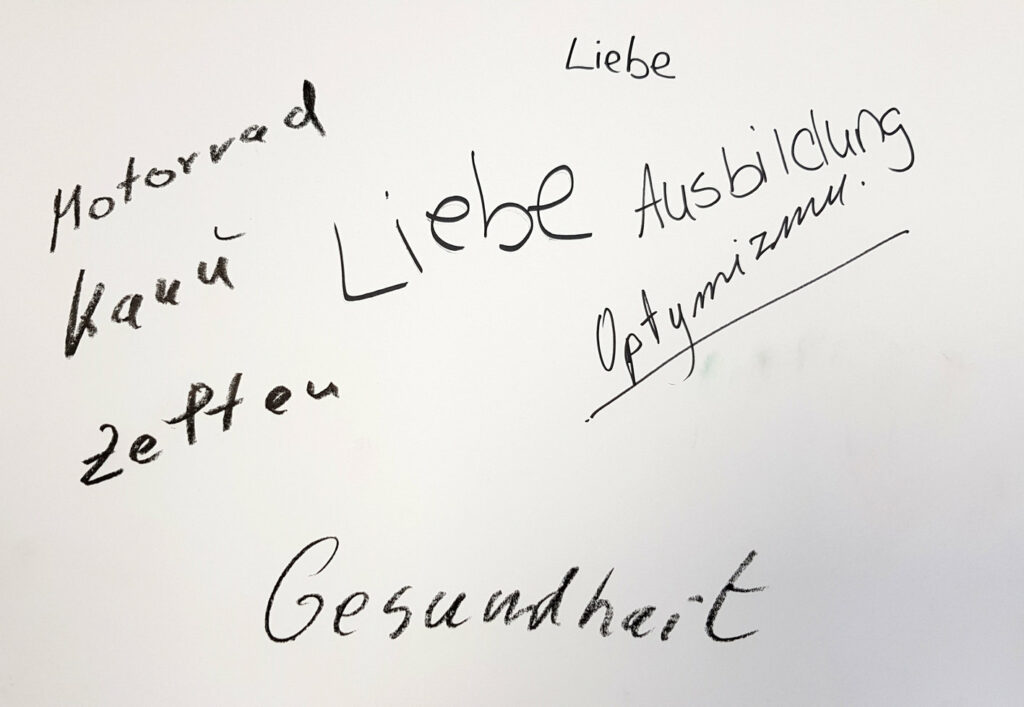 Liebe
Motorrad
Liebe
Ausbildung
Kanu
Optymizmu.
Zelten
Gesundheit